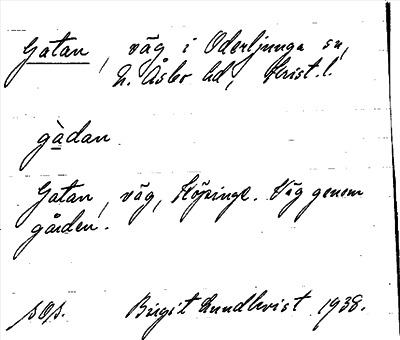 Gatan, väg i Oderljunga sn,
N. Åsbo hd, Krist.l.
gàdan
Gatan, väg, Köpinge. Väg genom
gården.
sOp. Birgit Lundkvist 1938.